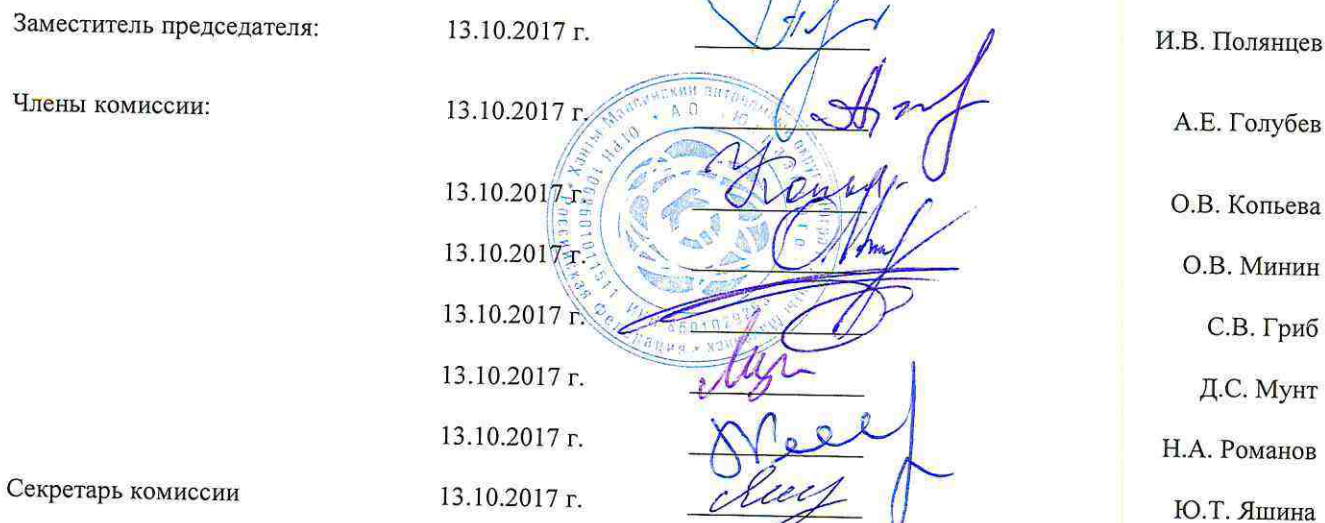 Заместитель председателя: 13.10.2017 г. И.В. Полянцев
Члены комиссии: 13.10.2017 г. А.Е. Голубев
13.10.2017 г. О.В. Копьева
13.10.2017 г. О.В. Минин
13.10.2017 г. С.В. Гриб
13.10.2017 г. Д.С. Мунт
13.10.2017 г. Н.А. Романов
Секретарь комиссии 13.10.2017 г. Ю.Т. Яшина
Российская Федерация